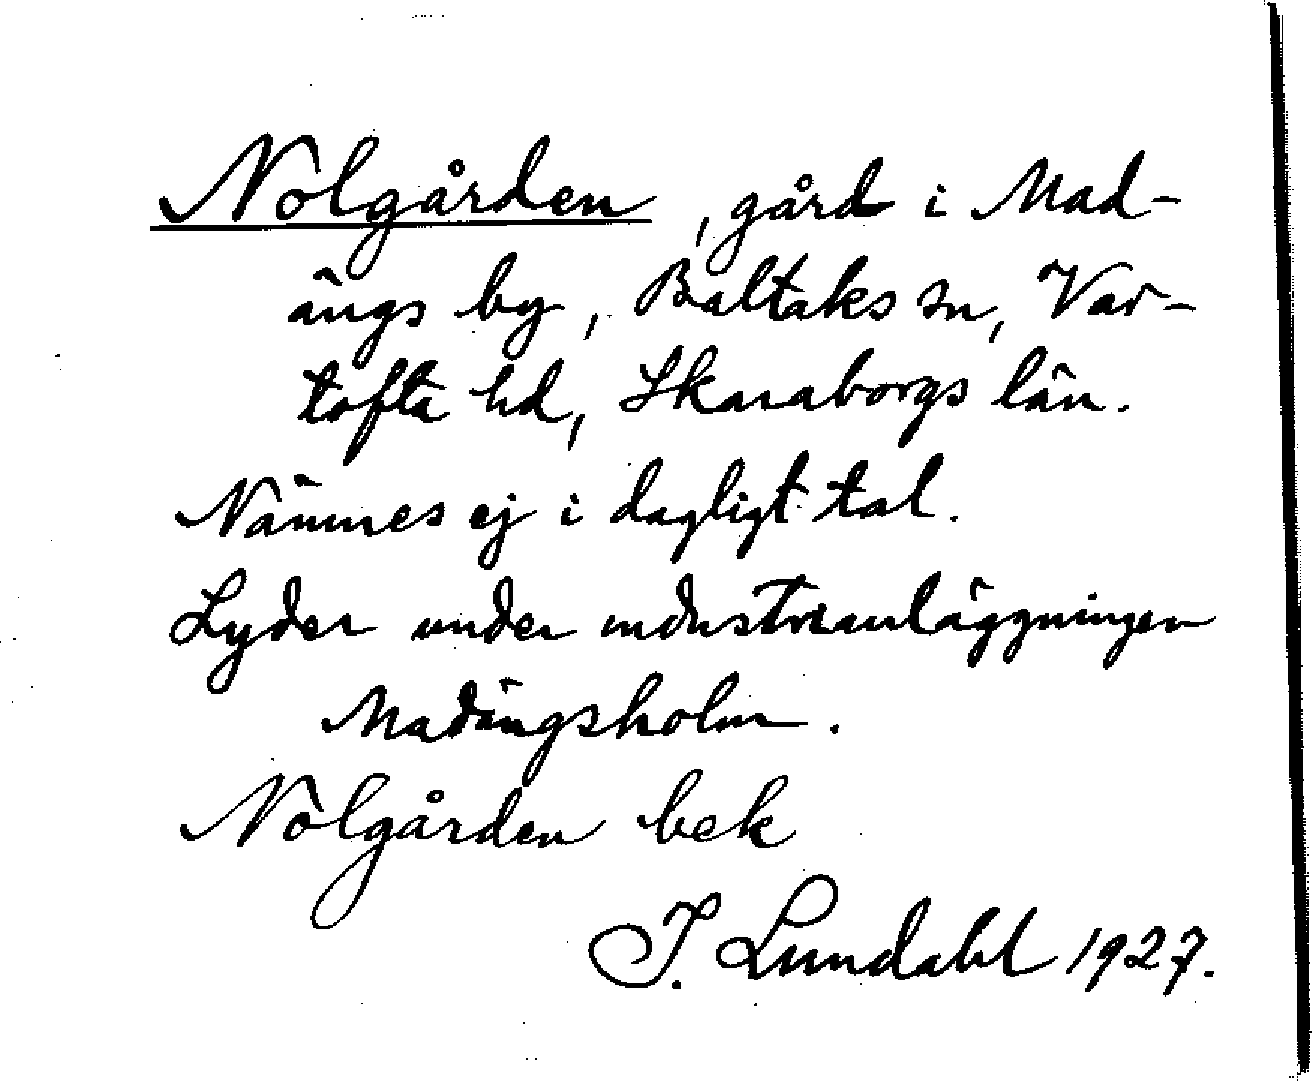 Nolgården, gård i Mad-
ängs by, Baltaks sn, Var-
tofta hd, Skaraborgs län.
Nämnes ej i dagligt tal.
Lyder under industrianläggningen
Madängsholm.
Nolgården bek
I. Lundahl 1927.